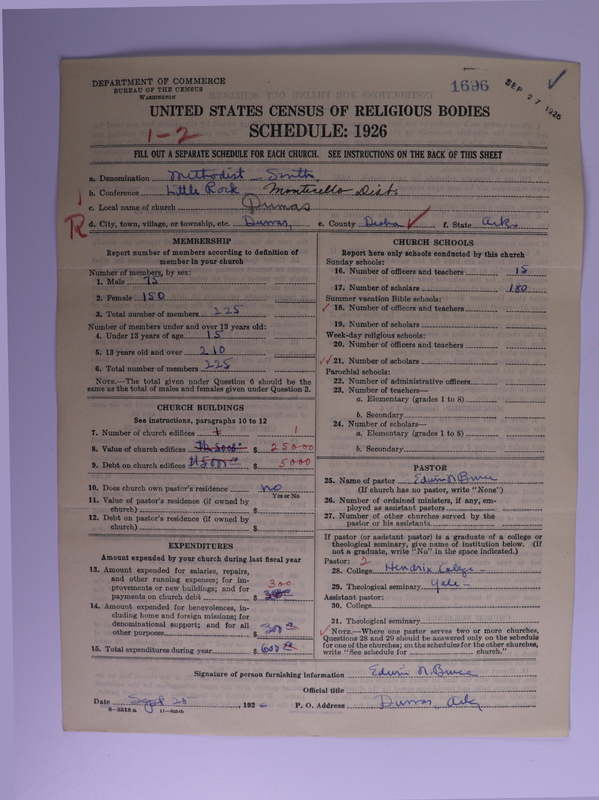 DEPARTMENT OF COMMERCE
BUREAU OF THE CENSUS
WASHINGTON
1696
SEP 27 1926
UNITED STATES CENSUS OF RELIGIOUS BODIES
SCHEDULE: 1926
1-2
FILL OUT A SEPARATE SCHEDULE FOR EACH CHURCH. SEE INSTRUCTIONS ON THE BACK OF THIS SHEET
a. Denomination Methodist South
b. Conference Little Rock - Monticello Dist.
c. Local name of church Dumas
R
d. City, town, village, or township, etc. Dumas, e. County Desha f. State Ark.
MEMBERSHIP
Report number of members according to definition of
member in your church
Number of members, by sex:
1. Male 75
2. Female 150
3. Total number of members 225
Number of members under and over 13 years old:
4. Under 13 years of age 15
5. 13 years old and over 210
6. Total number of members 225
NOTE.—The total given under Question 6 should be the
same as the total of males and females given under Question 3.
CHURCH BUILDINGS
See instructions, paragraphs 10 to 12
7. Number of church edifices 1
8. Value of church edifices $ 25000
9. Debt on church edifices $ 5000
10. Does church own pastor's residence no
Yes or No
11. Value of pastor's residence (if owned by
church) $
12. Debt on pastor's residence (if owned by
church) $
EXPENDITURES
Amount expended by your church during last fiscal year
13. Amount expended for salaries, repairs,
and other running expenses; for im-
provements or new buildings; and for
payments on church debt $ 300
14. Amount expended for benevolences, in-
cluding home and foreign missions; for
denominational support; and for all
other purposes 300
15. Total expenditures during year $ 600
CHURCH SCHOOLS
Report here only schools conducted by this church
Sunday schools:
16. Number of officers and teachers 15
17. Number of scholars 180
Summer vacation Bible schools:
18. Number of officers and teachers
19. Number of scholars
Week-day religious schools:
20. Number of officers and teachers
21. Number of scholars
Parochial schools:
22. Number of administrative officers
23. Number of teachers—
a. Elementary (grades 1 to 8)
b. Secondary
24. Number of scholars—
a. Elementary (grades 1 to 8)
b. Secondary
PASTOR
25. Name of pastor Edwin N. Bruce
(If church has no pastor, write "None")
26. Number of ordained ministers, if any, em-
ployed as assistant pastors
27. Number of other churches served by the
pastor or his assistants
If pastor (or assistant pastor) is a graduate of a college or
theological seminary, give name of institution below. (If
not a graduate, write "No" in the space indicated.)
Pastor: 2
28. College Hendrix College
29. Theological seminary Yale
Assistant pastor:
30. College
31. Theological seminary
NOTE.—Where one pastor serves two or more churches,
Questions 28 and 29 should be answered only on the schedule
for one of the churches; on the schedules for the other churches,
write "See schedule for church."
Signature of person furnishing information Edwin N. Bruce
Official title
Date Sept 25, 1926 P. O. Address Dumas Ark